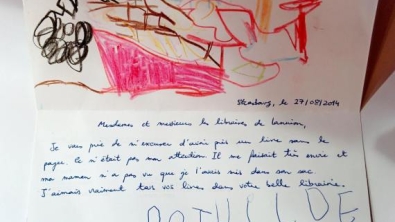 Strasbourg, le 27/08/2014
Mesdames et messieurs les libraires de Lannion,
Je vous prie de m'excuser d'avoir pris un livre sans le
payer. Ce n'était pas mon attention. Il me faisait très envie et
ma maman n'a pas vu que je l'avais mis dans son sac.
J'aimais vraiment tous vos livres dans votre belle librairie.